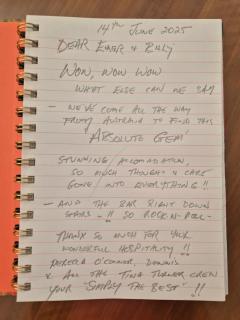 14TH JUNE 2025
DEAR EMER & BILLY
WOW, WOW WOW
WHAT ELSE CAN WE SAY
- WE'VE COME ALL THE WAY
FROM AUSTRALIA TO FIND THIS
'ABSOLUTE GEM'
STUNNING ACCOMODATION,
SO MUCH THOUGHT & CARE
GONE INTO EVERYTHING !!
- AND THE BAR RIGHT DOWN
STAIRS - !! SO ROCK N ROLL -
THANX SO MUCH FOR YOUR
WONDERFUL HOSPITALITY !!
REBECCA O'CONNOR, DENNIS
& ALL THE TINA TURNER CREW
YOUR "SIMPLY THE BEST" !!